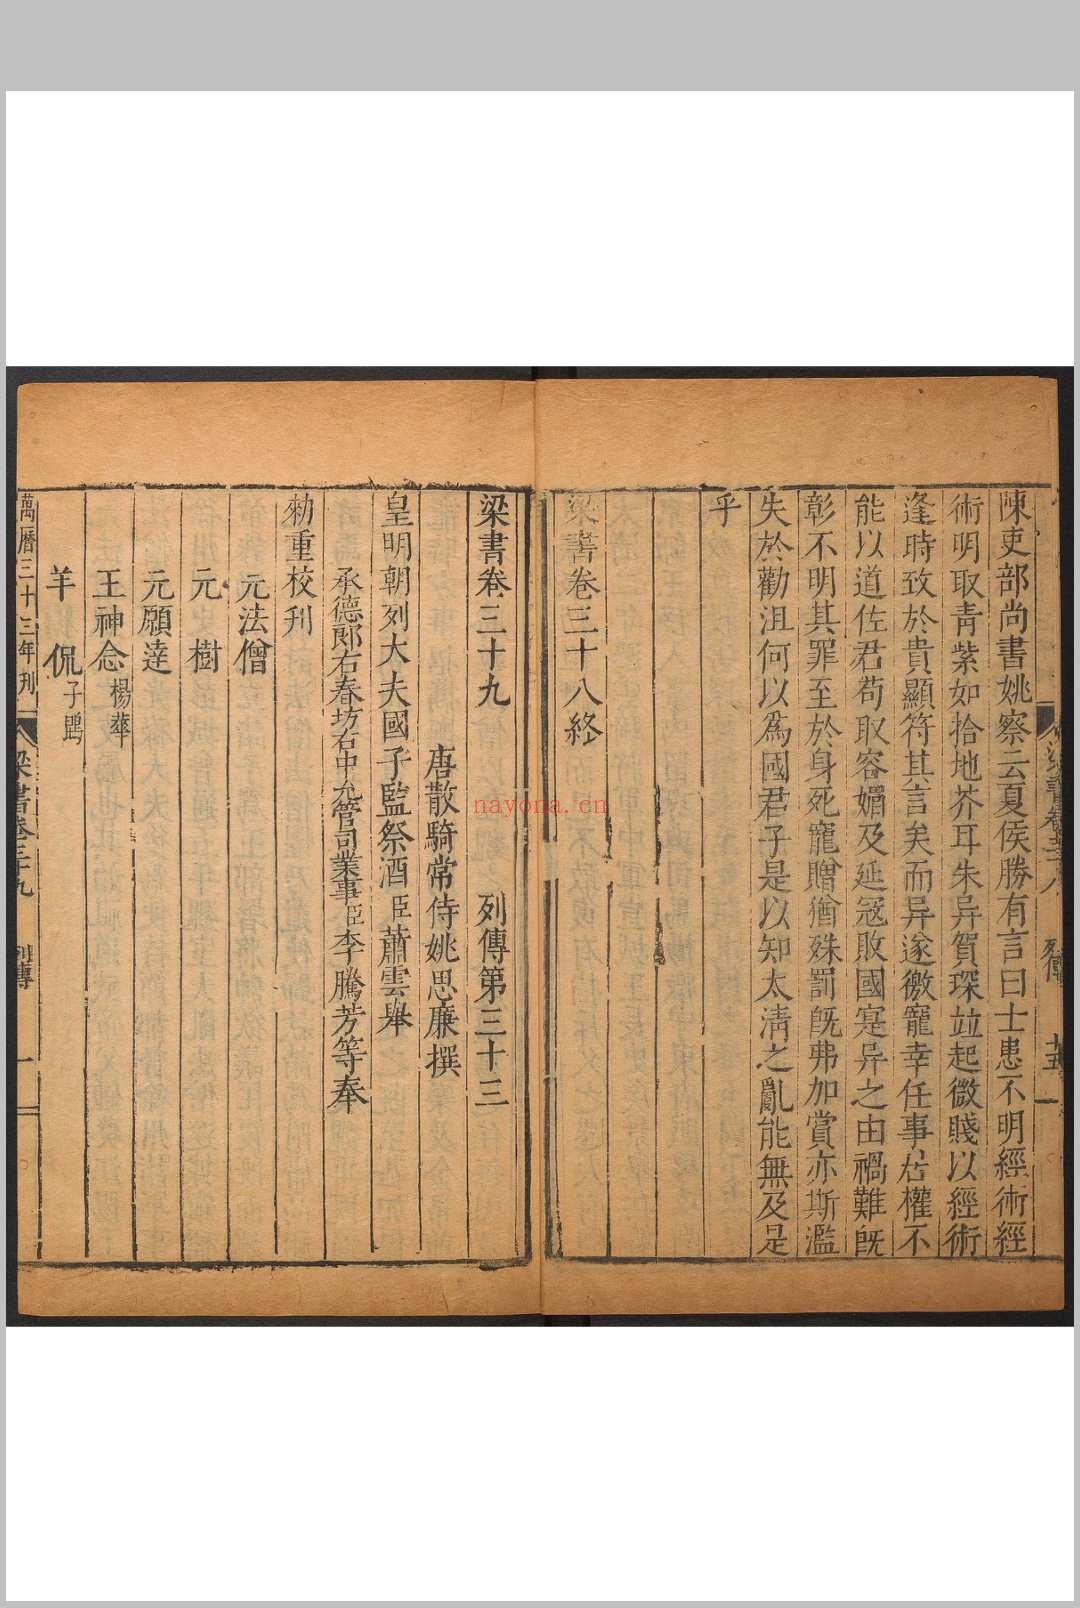 陳吏部尚書姚察云夏侯勝有言曰士患不明經術經
術明取青紫如拾地芥耳朱异賀琛竝起微賤以經術
逢時致於貴顯符其言矣而异遂徼寵幸任事居權不
能以道佐君苟取容媚及延寇敗國寔异之由禍難既
彰不明其罪至於身死寵贈猶殊罰既弗加賞亦斯濫
失於勸沮何以爲國君子是以知太清之亂能無及是
乎
梁書卷三十八終
梁書卷三十九 列傳第三十三
唐散騎常侍姚思廉撰
皇明朝列大夫國子監祭酒臣蕭雲舉
承德郎右春坊右中允管司業事臣李騰芳等奉
勑重校刊
元法僧
元樹
元願達
王神念 楊華
羊侃 子鵾
萬曆三十三年刊 梁書卷三十九 列傳 一
nayona.cn